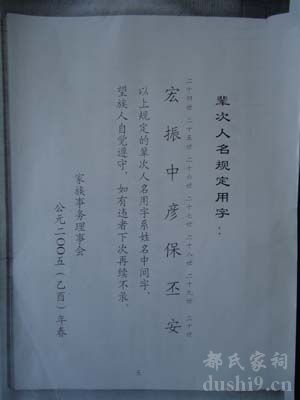 辈次人名规定用字：
二十四世 二十五世 二十六世 二十七世 二十八世 二十九世 三十世
宏 振 中 彦 保 丕 安
以上规定的辈次人名用字系姓名中间字，
望族人自觉遵守，如有违者下次再续不录。
家族事务理事会
公元二〇〇五（乙酉）年春
都氏家祠
dushi9.cn